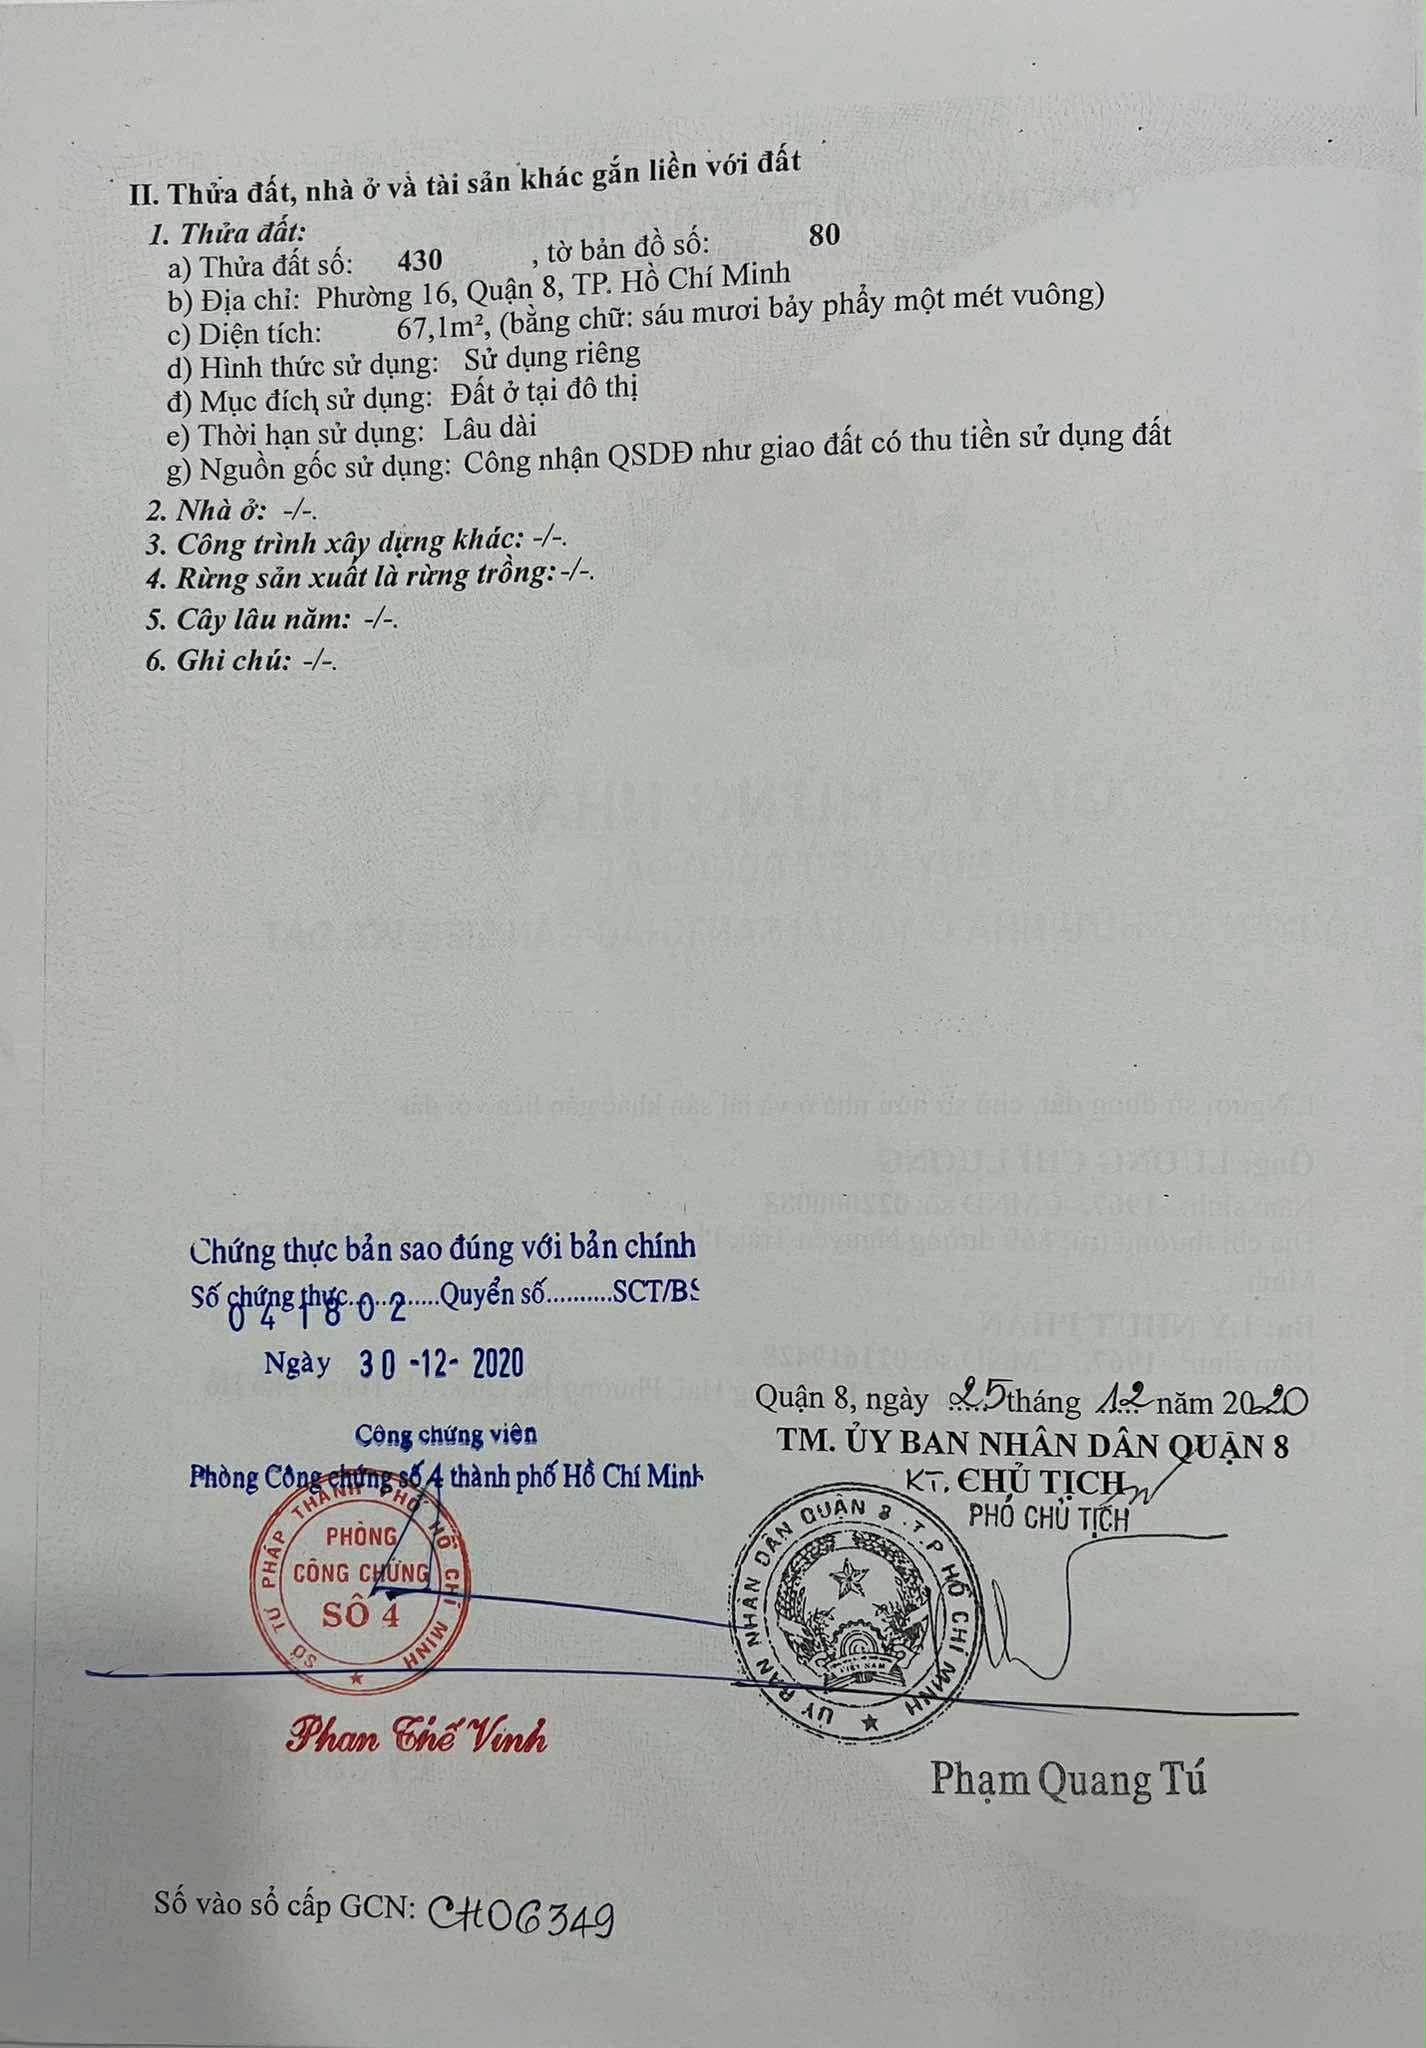 II. Thửa đất, nhà ở và tài sản khác gắn liền với đất
1. Thửa đất:
a) Thửa đất số: 430 , tờ bản đồ số: 80
b) Địa chỉ: Phường 16, Quận 8, TP. Hồ Chí Minh
c) Diện tích: 67,1m², (bằng chữ: sáu mươi bảy phẩy một mét vuông)
d) Hình thức sử dụng: Sử dụng riêng
đ) Mục đích sử dụng: Đất ở tại đô thị
e) Thời hạn sử dụng: Lâu dài
g) Nguồn gốc sử dụng: Công nhận QSDĐ như giao đất có thu tiền sử dụng đất
2. Nhà ở: -/-.
3. Công trình xây dựng khác: -/-.
4. Rừng sản xuất là rừng trồng: -/-.
5. Cây lâu năm: -/-.
6. Ghi chú: -/-.
Chứng thực bản sao đúng với bản chính
Số chứng thực..............Quyển số..........SCT/BS
041802
Ngày 30-12-2020
Công chứng viên
Phòng Công chứng số 4 thành phố Hồ Chí Minh
SỞ TƯ PHÁP THÀNH PHỐ HỒ CHÍ MINH
PHÒNG
CÔNG CHỨNG
SỐ 4
Phan Thế Vinh
Quận 8, ngày 25 tháng 12 năm 2020
TM. ỦY BAN NHÂN DÂN QUẬN 8
KT. CHỦ TỊCH
PHÓ CHỦ TỊCH
ỦY BAN NHÂN DÂN QUẬN 8 . T.P HỒ CHÍ MINH
VIỆT NAM
Phạm Quang Tú
Số vào sổ cấp GCN: CH06349